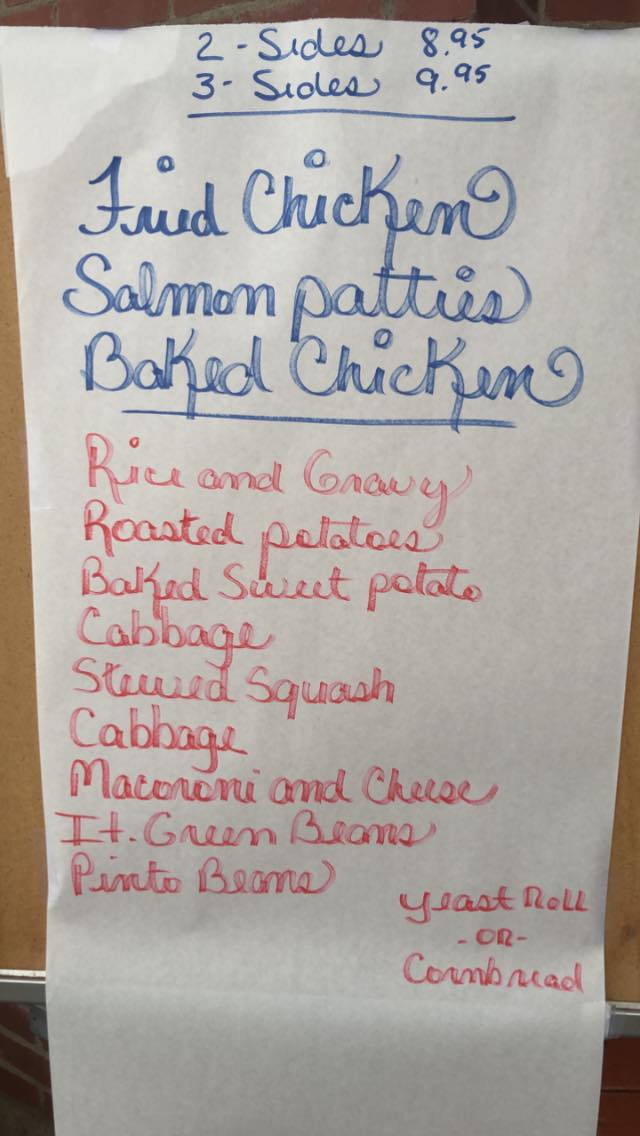 2 - Sides 8.95
3 - Sides 9.95
Fried Chicken
Salmon patties
Baked Chicken
Rice and Gravy
Roasted potatoes
Baked Sweet potato
Cabbage
Stewed Squash
Cabbage
Macoroni and Cheese
It. Green Beans
Pinto Beans
yeast Roll
- OR -
Cornbread